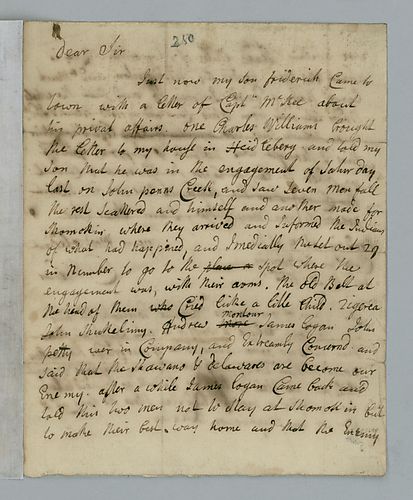 250
Dear Sir
Just now my son friderich Came to
town with a letter of Capt McKee about
his privat affairs. one Charles Williams brought
the letter to my house in Heidleberg and told my
son that he was in the engagement of Saturday
last on John penns Creek, and saw Seven men fall
the rest Scattered and himself and another made for
Shomokin, where they arrived and Informed the Indians
of what had happened, and Imedially that set out 29
in Number to go to the spot where the
engagement was, with their arms. the old Belt at
the head of them who Cried like a litle Child.
John Shikelimy. Andrew montour James Logan John
petty wer in Company, and Extreamly Concernd and
said that the Shawano & delawares are become our
Enemy. after a while James Logan Came back and
told this two men not to stay at Shomokin but
to make their best way home and that the Enemy